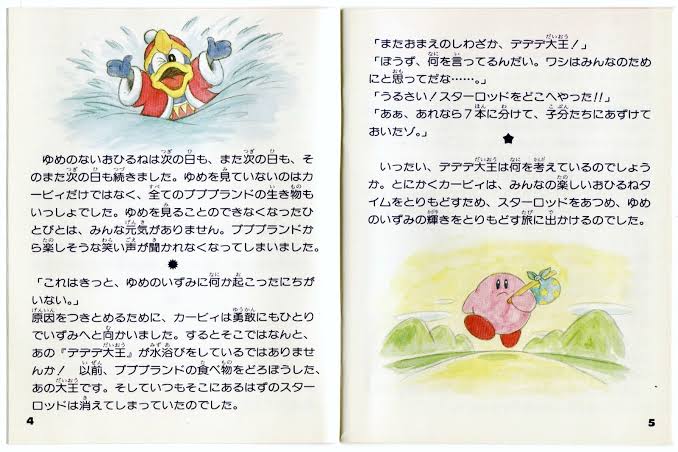 ゆめのないおひるねは次の日も、また次の日も、そ
のまた次の日も続きました。ゆめを見ていないのはカ
ービィだけではなく、全てのプププランドの生き物も
いっしょでした。ゆめを見ることのできなくなったひ
とびとは、みんな元気がありません。プププランドか
ら楽しそうな笑い声が聞かれなくなってしまいました。
「これはきっと、ゆめのいずみに何か起こったにちが
いない。」
原因をつきとめるために、カービィは勇敢にもひとり
でいずみへと向かいました。するとそこではなんと、
あの『デデデ大王』が水浴びをしているではありませ
んか！ 以前、プププランドの食べ物をどろぼうした、
あの大王です。そしていつもそこにあるはずのスター
ロッドは消えてしまっていたのでした。
4
「またおまえのしわざか、デデデ大王！」
「ぼうず、何を言ってるんだい。ワシはみんなのため
にと思ってだな……。」
「うるさい！スターロッドをどこへやった!!」
「あぁ、あれなら7本に分けて、子分たちにあずけて
おいたゾ。」
★
いったい、デデデ大王は何を考えているのでしょう
か。とにかくカービィは、みんなの楽しいおひるねタ
イムをとりもどすため、スターロッドをあつめ、ゆめ
のいずみの輝きをとりもどす旅に出かけるのでした。
5